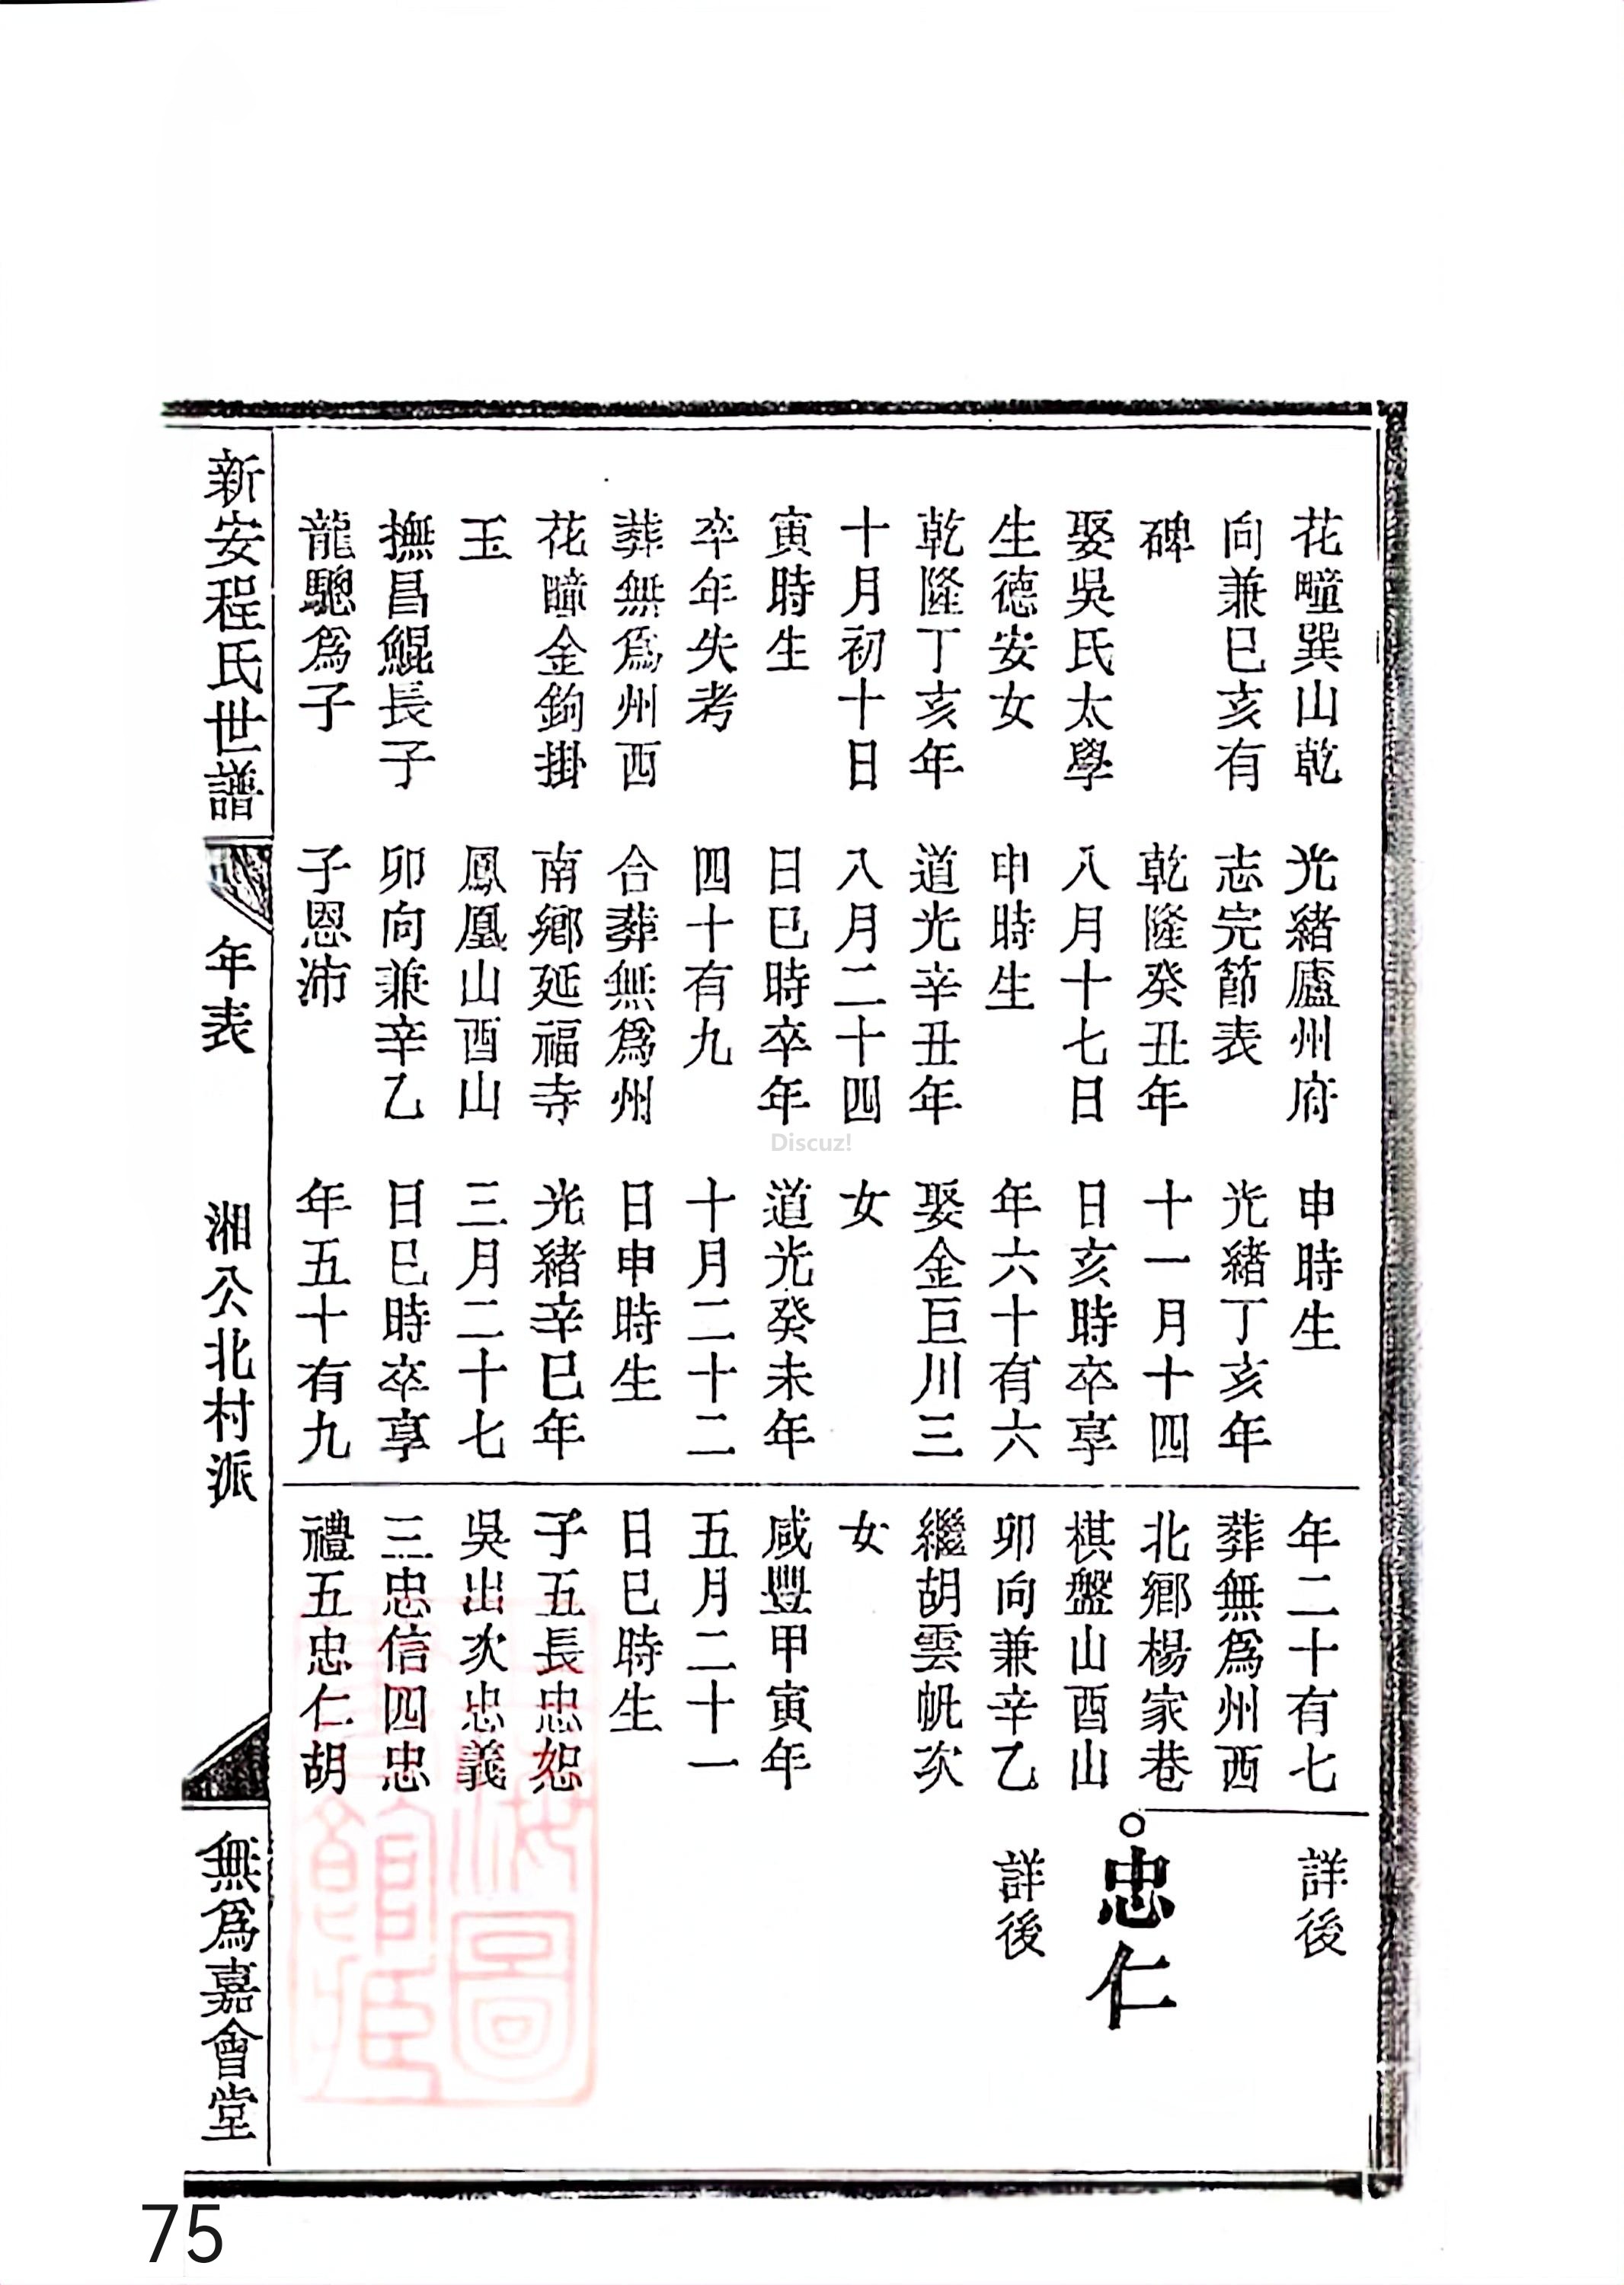 花疃巽山乾
向兼巳亥有
碑
娶吳氏太學
生德安女
乾隆丁亥年
十月初十日
寅時生
卒年失考
葬無爲州西
花疃金鉤掛
玉
撫昌鯤長子
龍驄爲子
光緒廬州府
志完節表
乾隆癸丑年
八月十七日
申時生
道光辛丑年
八月二十四
日巳時卒年
四十有九
合葬無爲州
南鄉延福寺
鳳凰山酉山
卯向兼辛乙
子恩沛
申時生
光緒丁亥年
十一月十四
日亥時卒享
年六十有六
娶金巨川三
女
道光癸未年
十月二十二
日申時生
光緒辛巳年
三月二十七
日巳時卒享
年五十有九
年二十有七
葬無爲州西
北鄉楊家巷
棋盤山酉山
卯向兼辛乙
繼胡雲帆次
女
咸豐甲寅年
五月二十一
日巳時生
子五長忠恕
吳出次忠義
三忠信四忠
禮五忠仁胡
詳後
○忠仁
詳後
新安程氏世譜
年表
湘公北村派
無爲嘉會堂
上海圖書館藏
Discuz!
75